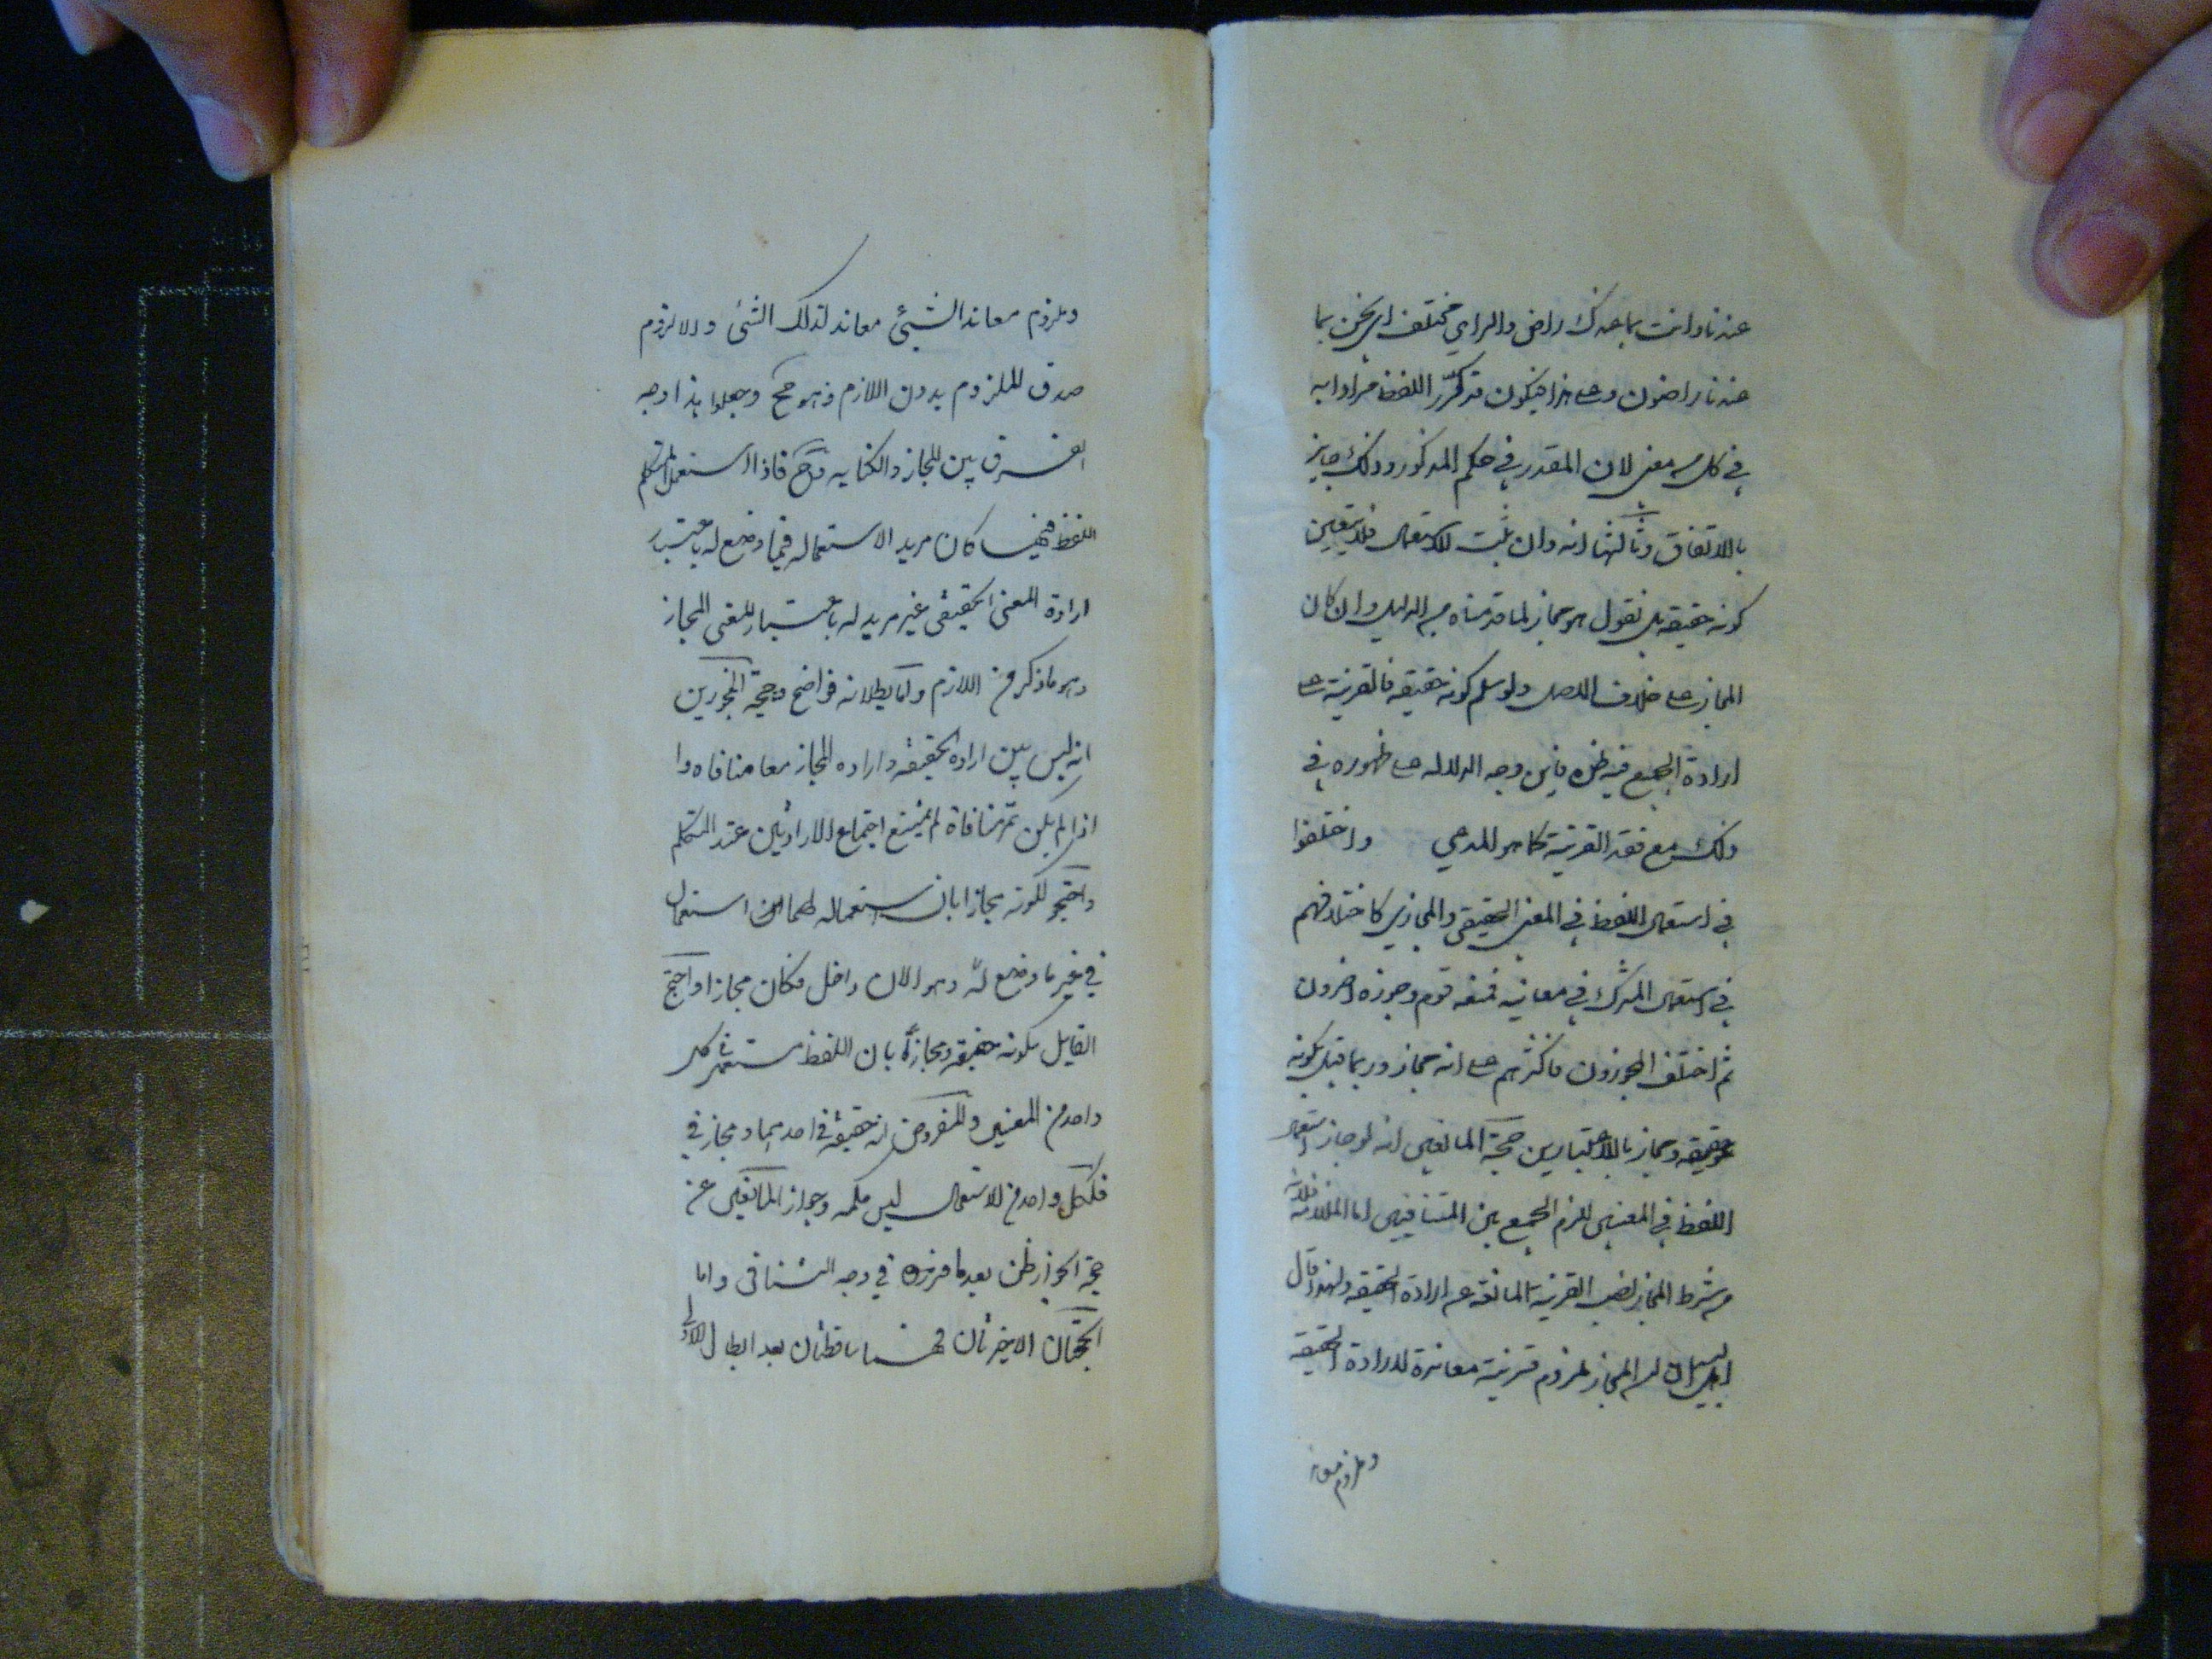 عندنا وانت بما عندك راض والراي مختلف اي نحن بما
عندنا راضون وعلى هذا فيكون قد كرر اللفظ مرادا به
في كل مرة معنى لان المقدر في حكم المذكور وذلك جايز
بالاتفاق وثالثها انه وان ثبت الاستعمال فلا يتعين
كونه حقيقة بل نقول هو مجاز لما قدمناه من الدليل وان كان
المجاز على خلاف الاصل ولو سلم كونه حقيقة فالقرينة على
ارادة الجميع فيه ظ فاين وجه الدلالة على ظهوره في
ذلك مع فقد القرينة كما هو المدعي واختلفوا
في استعمال اللفظ في المعنى الحقيقي والمجازي كاختلافهم
في استعمال المشترك في معانيه فمنعه قوم وجوزه اخرون
ثم اختلف المجوزون فاكثرهم على انه مجاز وربما قيل بكونه
حقيقة ومجاز بالاعتبارين حجة المانعين انه لو جاز استعمال
اللفظ في المعنيين للزم الجمع بين المتنافيين اما الملازمة فلان
من شرط المجاز نصب القرينة المانعة عن ارادة الحقيقة ولهذا قال
اهل البيان ان المجاز ملزوم قرينة معاندة لارادة الحقيقة
وملزوم معاند
وملزوم معاند الشيئ معاند لذلك الشئ والا لزم
صدق الملزوم بدون اللازم وهو مح وجعلوا هذا وجه
الفرق بين المجاز والكناية وح فاذا استعمل المتكلم
اللفظ فيهما كان مريدا لاستعماله فيما وضع له باعتبار
ارادة المعنى الحقيقي غير مريد له باعتبار المعنى المجاز
وهو ما ذكر من اللازم واما بطلانه فواضح وحجة المجوزين
انه ليس بين ارادة الحقيقة وارادة المجاز معا منافاة وا
اذا لم يكن ثم منافاة لم يمتنع اجتماع الارادتين عند المتكلم
واحتجو لكونه مجازا بان استعماله لهما استعمال
في غير ما وضع له وهو الان داخل فكان مجازا واحتج
القايل بكونه حقيقة ومجازا بان اللفظ مستعمل في كل
واحد من المعنيين والمفروض انه حقيقة في احدهما ومجاز في
فلكل واحد من الاستعمال ليس حكمه وجواز المانعين عن
حجة الجواز ظ بعد ما قرروه في وجه التنافي واما
الحجتان الاخيرتان فهما ساقطتان بعد ابطال الاولى